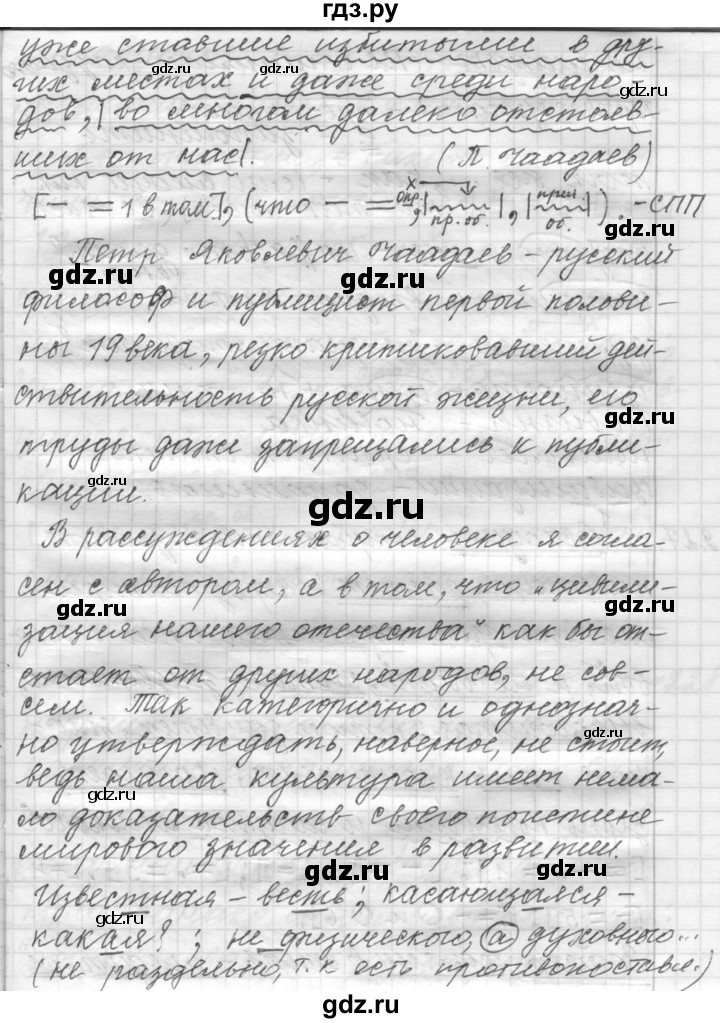 гдз.ру
уже ставшие избитыми в дру-
гих местах и даже среди наро-
дов, | во многом далеко отстояв-
ших от нас|.
(П. Чаадаев)
[— = 1 в том], (что — = опр., | пр. об. |, | прич. об. |). - СПП
Петр Яковлевич Чаадаев – русский
философ и публицист первой полови-
ны 19 века, резко критиковавший дей-
ствительность русской жизни, его
труды даже запрещались к публи-
кации.
В рассуждениях о человеке я согла-
сен с автором, а в том, что „цивили-
зация нашего отечества" как бы от-
стает от других народов, не сов-
сем. Так категорично и однознач-
но утверждать, наверное, не стоит,
ведь наша культура имеет нема-
ло доказательств своего поистине
мирового значения в развитии.
Известная – весть; касающаяся –
какая?; не физического, а духовного...
(не раздельно, т.к есть противопоставл.)
gdz.ru